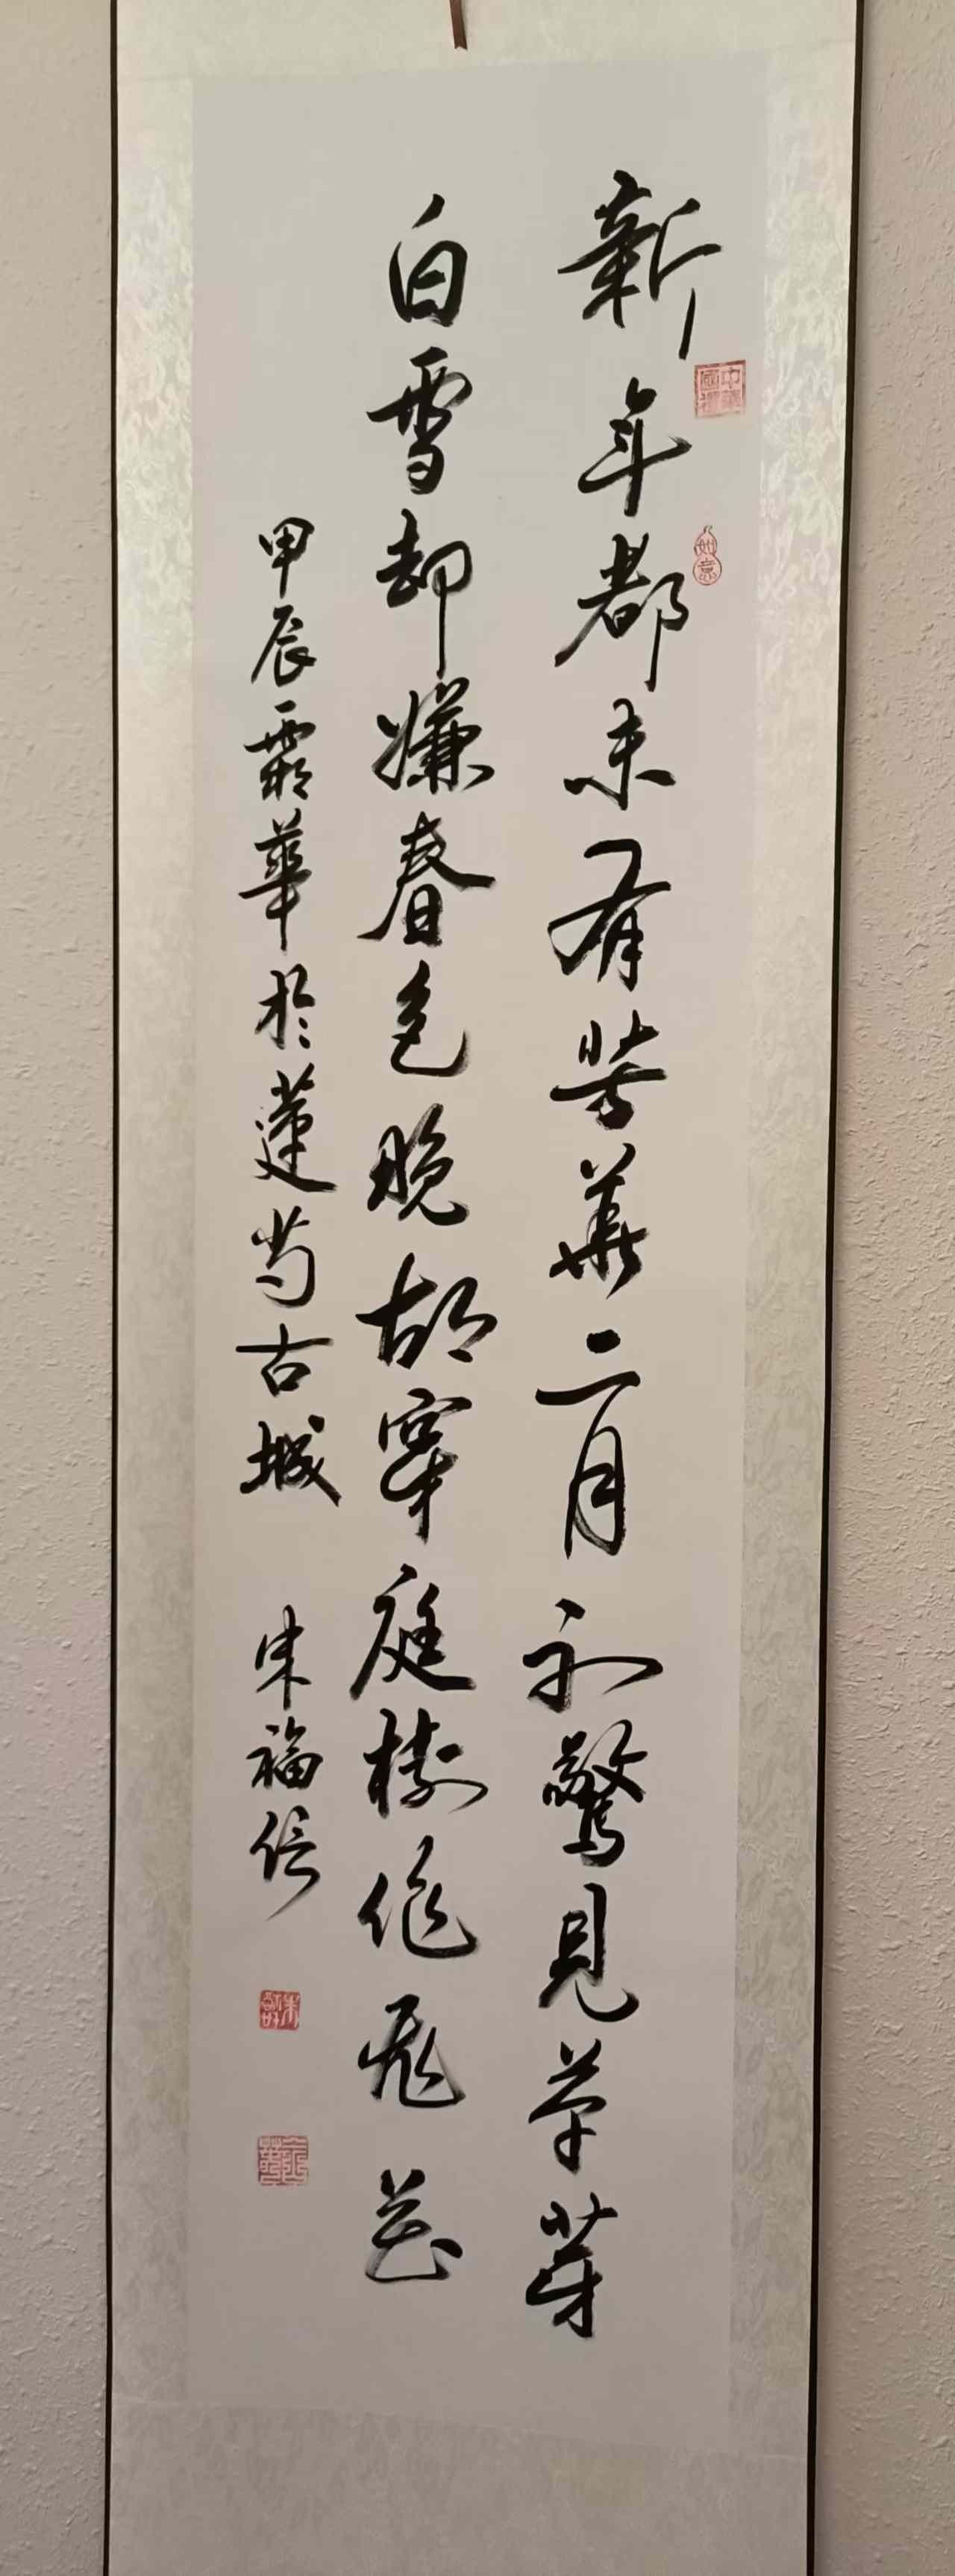 新年都未有芳華二月初驚見草芽
白雪却嫌春色晚故穿庭樹作飛花
甲辰霜華於蓮芍古城 朱福信
如意